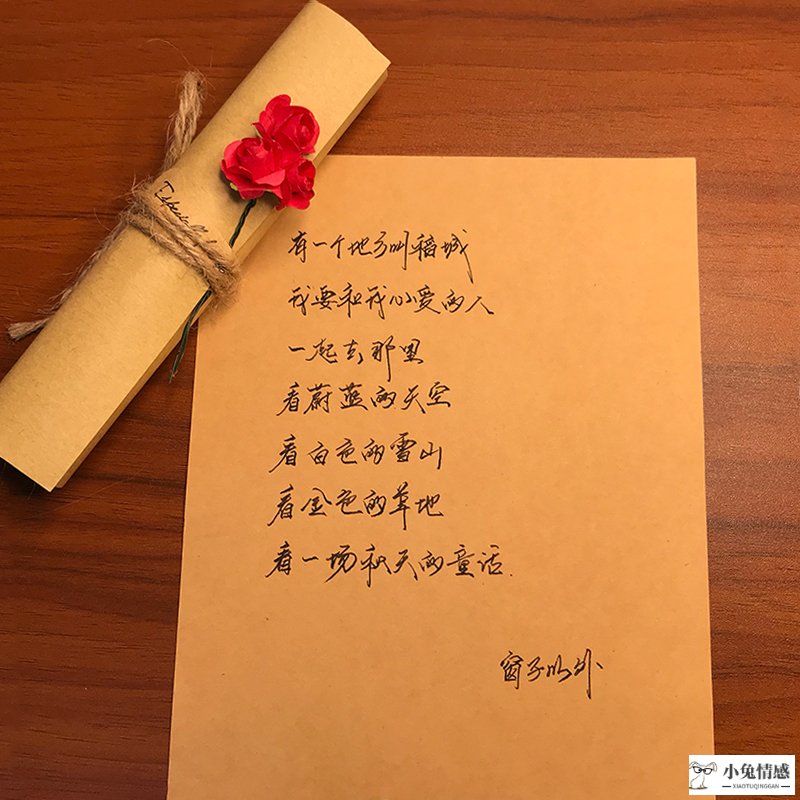 有一个地方叫稻城
我要和我心爱的人
一起去那里
看蔚蓝的天空
看白色的雪山
看金色的草地
看一场秋天的童话.
窗子以外
小兔情感
XIAOTUQINGGAN